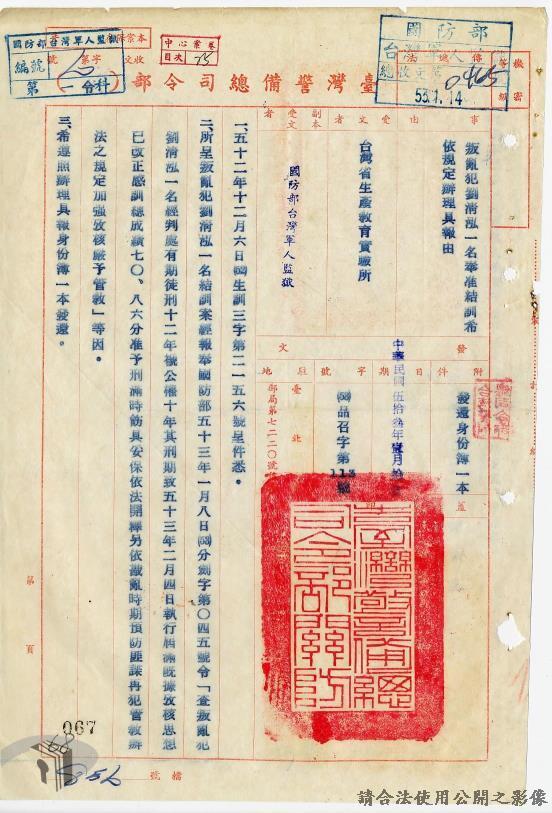 臺灣警備總司令部
機密等級
國防部台灣軍人監獄
編號
字第
第(一)合科
中心案卷
目次 75
收文
字第
號
國防部
台灣軍人
總收文
0465
53.1.14
事由
叛亂犯劉清泓一名奉准結訓希
依規定辦理具報由
受文者
台灣省生產教育實驗所
副本
受文者
國防部台灣軍人監獄
發文
附件
發還身份簿一本
日期
中華民國伍拾叁年壹月拾
字號
品召字第113號
駐地
臺北
郵局第七二二〇號
臺灣警備總司令部關防
一、五十二年十二月六日生訓三字第二一五六號呈件悉。
二、所呈叛亂犯劉清泓一名結訓案經報奉國防部五十三年一月八日分劍字第〇四五號令「查叛亂犯
劉清泓一名經判處有期徒刑十二年褫公權十年其刑期致五十三年二月四日執行屆滿既據攷核思想
已改正感訓總成績七〇、八六分准予刑滿時飭具安保依法開釋另依戡亂時期預防匪諜再犯管教辦
法之規定加強攷核嚴予管教」等因。
三、希遵照辦理具報身份簿一本發還。
第
頁
067
856
檔號
請合法使用公開之影像